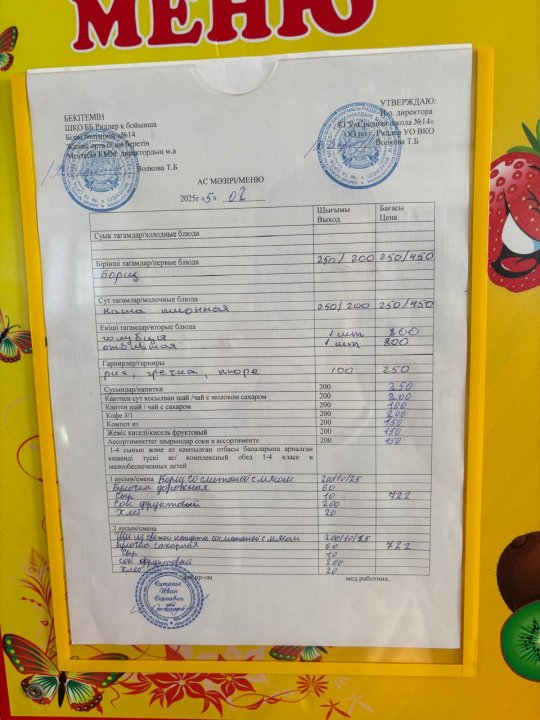 МЕНЮ
БЕКІТЕМІН
ШҚО ББ Риддер қ бойынша
Білім бөлімінің «№14
Жалпы орта білім беретін
Мектебі» КММ директордың м.а
Волкова Т.Б
УТВЕРЖДАЮ:
И.о. директора
КГУ «Средняя школа №14»
ОО по г. Риддер УО ВКО
Волкова Т.Б
АС МӘЗІРІ/МЕНЮ
2025г «5» 02
Шығымы Бағасы
Выход Цена
Суық тағамдар/холодные блюда
Бірінші тағамдар/первые блюда 250/200 250/450
борщ
Сүт тағамдар/молочные блюда
каша пшонная 250/200 250/450
Екінші тағамдар/вторые блюда
голубцы 1 шт 800
отбивная 1 шт 800
Гарнирлер/гарниры
рис, гречка, пюре 100 250
Сусындар/напитки 200 250
Кантпен сүт қосылған шай /чай с молоком сахаром 200 200
Кантен шай / чай с сахаром 200 100
Кофе 3/1 200 200
Компот из 200 150
Жеміс киселі/кисель фруктовый 200 150
Ассортименттег шырындар соки в ассортименте 200 150
1-4 сынып және аз қамтылған отбасы балаларына арналған
кешенді түскі ас/ комплексный обед 1-4 класс и
малообеспеченных детей
1 ауысым/смена Борщ со сметаной с мясом 200/10/25
Булочка дорожная 60
Сыр 10 722
Сок фруктовый 200
Хлеб 20
2 ауысым/смена
Щи из свежей капусты со сметаной с мясом 200/10/25
Булочка сахарная 60 722
Сыр 10
Сок фруктовый 200
Хлеб 20
мед.работник.